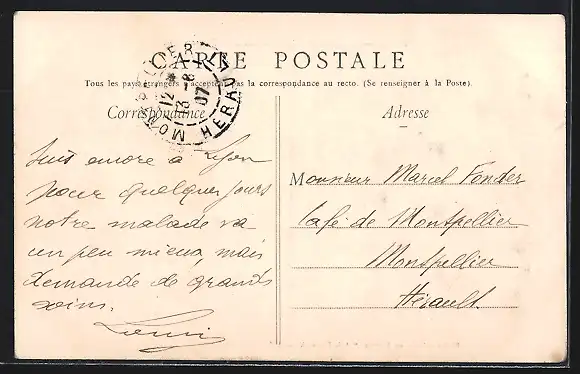 CARTE POSTALE
Tous les pays étrangers n'acceptent pas la correspondance au recto. (Se renseigner à la Poste).
Correspondance
Adresse
MONTPELLIER
12 *
13 -8
07
HERAULT
Suis encore à Lyon
pour quelques jours
notre malade va
un peu mieux, mais
demande de grands
soins.
Monsieur Marcel Fonder
Café de Montpellier
Montpellier
Hérault